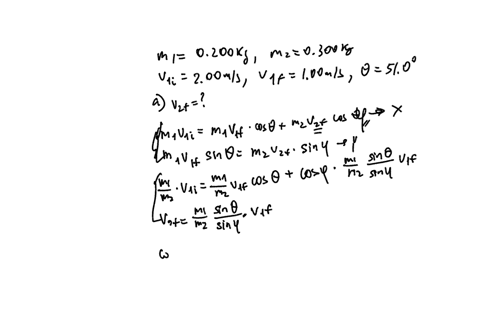 m1= 0.200kg, m2=0.300kg
V1i=2.00m/s, V1f=1.00m/s, θ=51.0°
a) V2f=?
m1V1i = m1V1f · cosθ + m2V2f cos φ → X
m1V1f sinθ = m2V2f · sinφ → y
m1/m2 · V1i = m1/m2 V1f cosθ + cosφ · m1/m2 sinθ/sinφ V1f
V2f = m1/m2 sinθ/sinφ · V1f